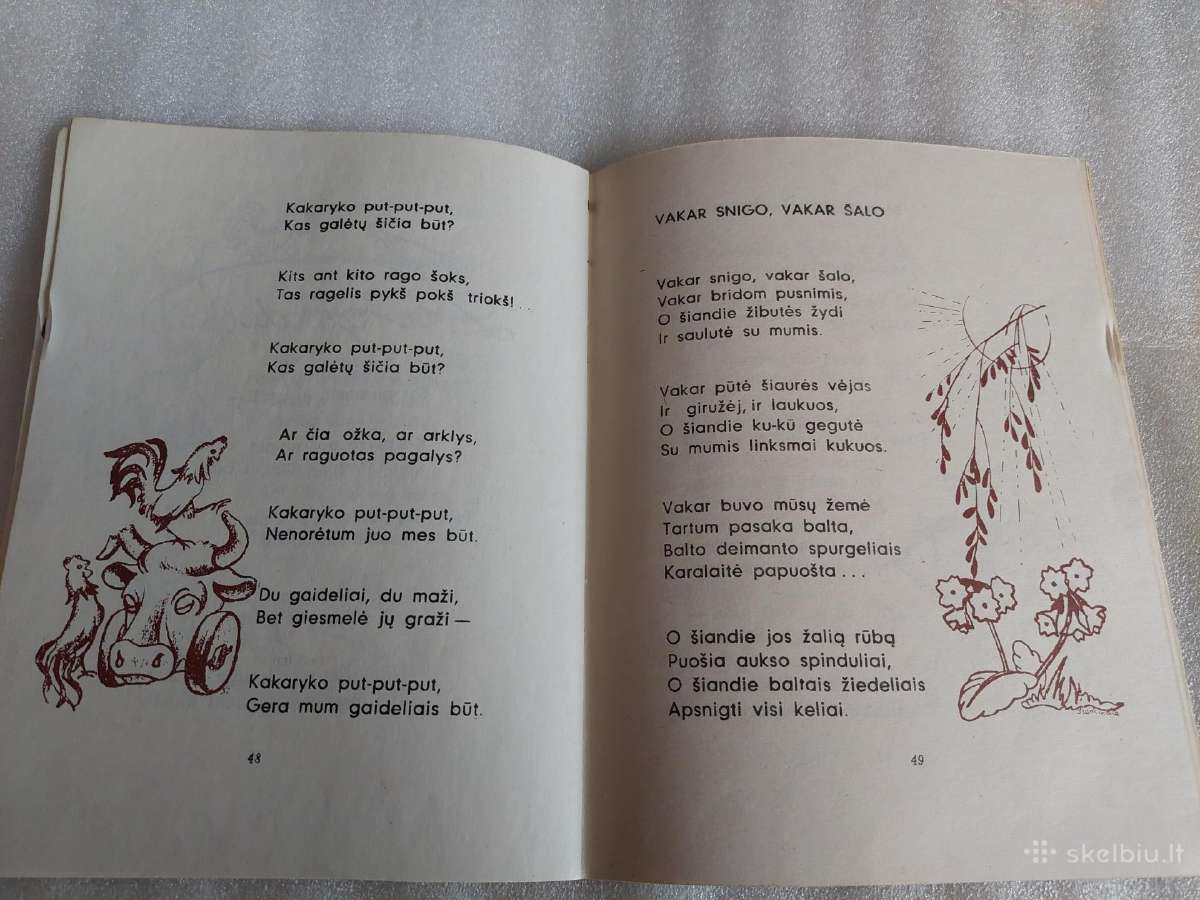 Kakaryko put-put-put,
Kas galėtų šičia būt?
Kits ant kito rago šoks,
Tas ragelis pykš pokš triokš!...
Kakaryko put-put-put,
Kas galėtų šičia būt?
Ar čia ožka, ar arklys,
Ar raguotas pagalys?
Kakaryko put-put-put,
Nenorėtum juo mes būt.
Du gaideliai, du maži,
Bet giesmelė jų graži —
Kakaryko put-put-put,
Gera mum gaideliais būt.
48
VAKAR SNIGO, VAKAR ŠALO
Vakar snigo, vakar šalo,
Vakar bridom pusnimis,
O šiandie žibutės žydi
Ir saulutė su mumis.
Vakar pūtė šiaurės vėjas
Ir giružėj, ir laukuos,
O šiandie ku-kū gegutė
Su mumis linksmai kukuos.
Vakar buvo mūsų žemė
Tartum pasaka balta,
Balto deimanto spurgeliais
Karalaitė papuošta ...
O šiandie jos žalią rūbą
Puošia aukso spinduliai,
O šiandie baltais žiedeliais
Apsnigti visi keliai.
49
skelbiu.lt